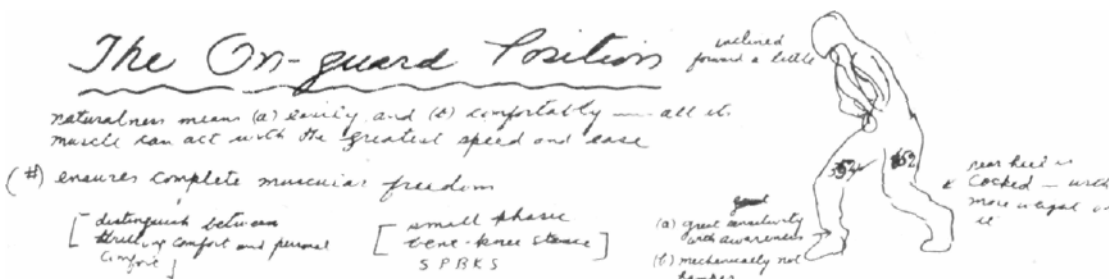 The On-guard Position
inclined
forward a little
naturalness means (a) easily and (b) comfortably — all its
muscle can act with the greatest speed and ease
(#) ensures complete muscular freedom
[ distinguish between
comfort and personal
comfort ]
[ small phasic
bent-knee stance ]
S P B K S
(a) great sensitivity
with awareness
(b) mechanically not
hamper
rear heel is
cocked — with
more weight on
it